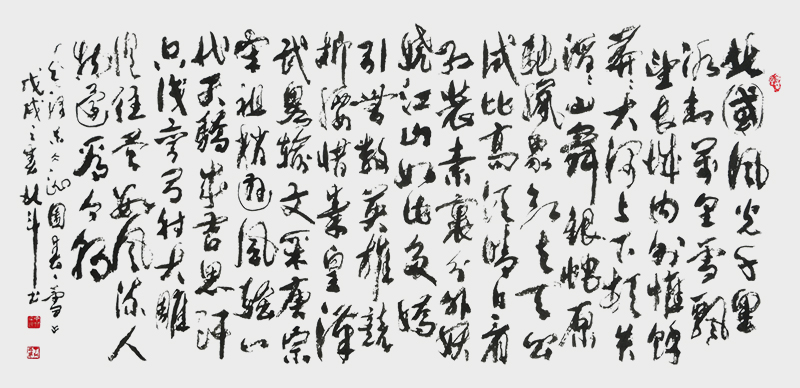 北國風光千里
冰封萬里雪飄
望長城内外惟餘
莽〻大河上下頓失
滔〻山舞銀蛇原
馳蠟象欲與天公
試比高須晴日看
紅裝素裹分外妖
嬈江山如此多嬌
引無數英雄競
折腰惜秦皇漢
武略輸文采唐宗
宋祖稍遜風騷一
代天驕成吉思汗
只識彎弓射大雕
俱往矣數風流人
物還看今朝
毛澤東沁園春雪
戊戌之春北斗書